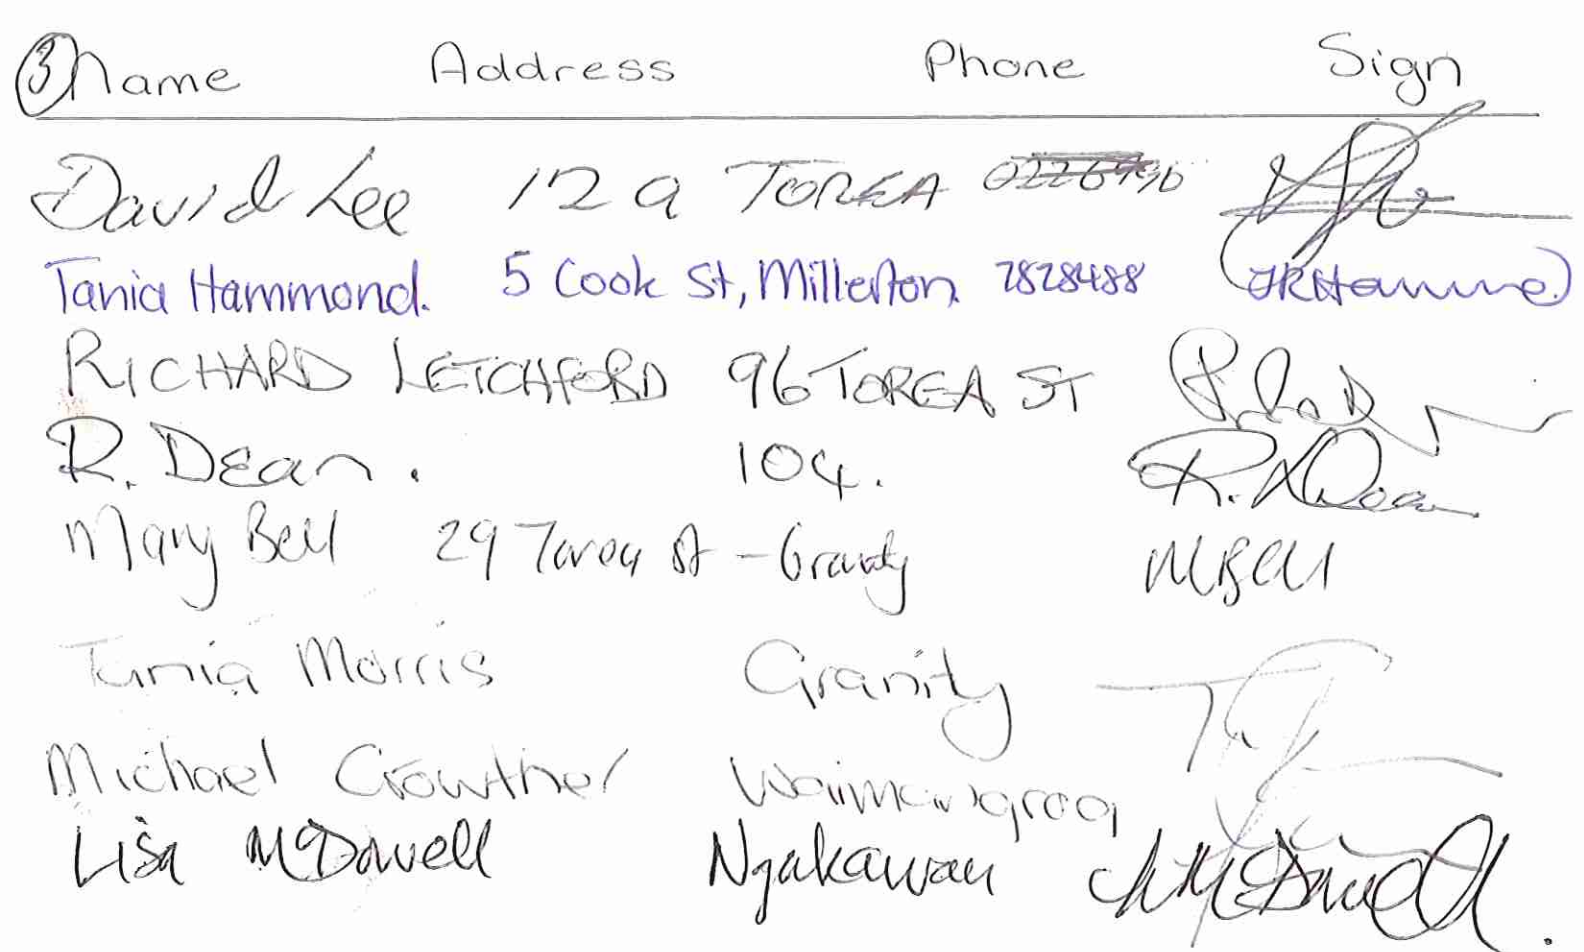 3 Name Address Phone Sign
David Lee 12 a TOREA
Tania Hammond. 5 Cook St, Millerton 7828488 JRHamme
RICHARD LETCHFORD 96 TOREA ST
R. Dean. 104. R. Dean
Mary Bell 29 Torea St - Granity MBell
Tania Morris Granity
Michael Crowther Waimangaroa
Lisa McDowell Ngakawau McDowell.